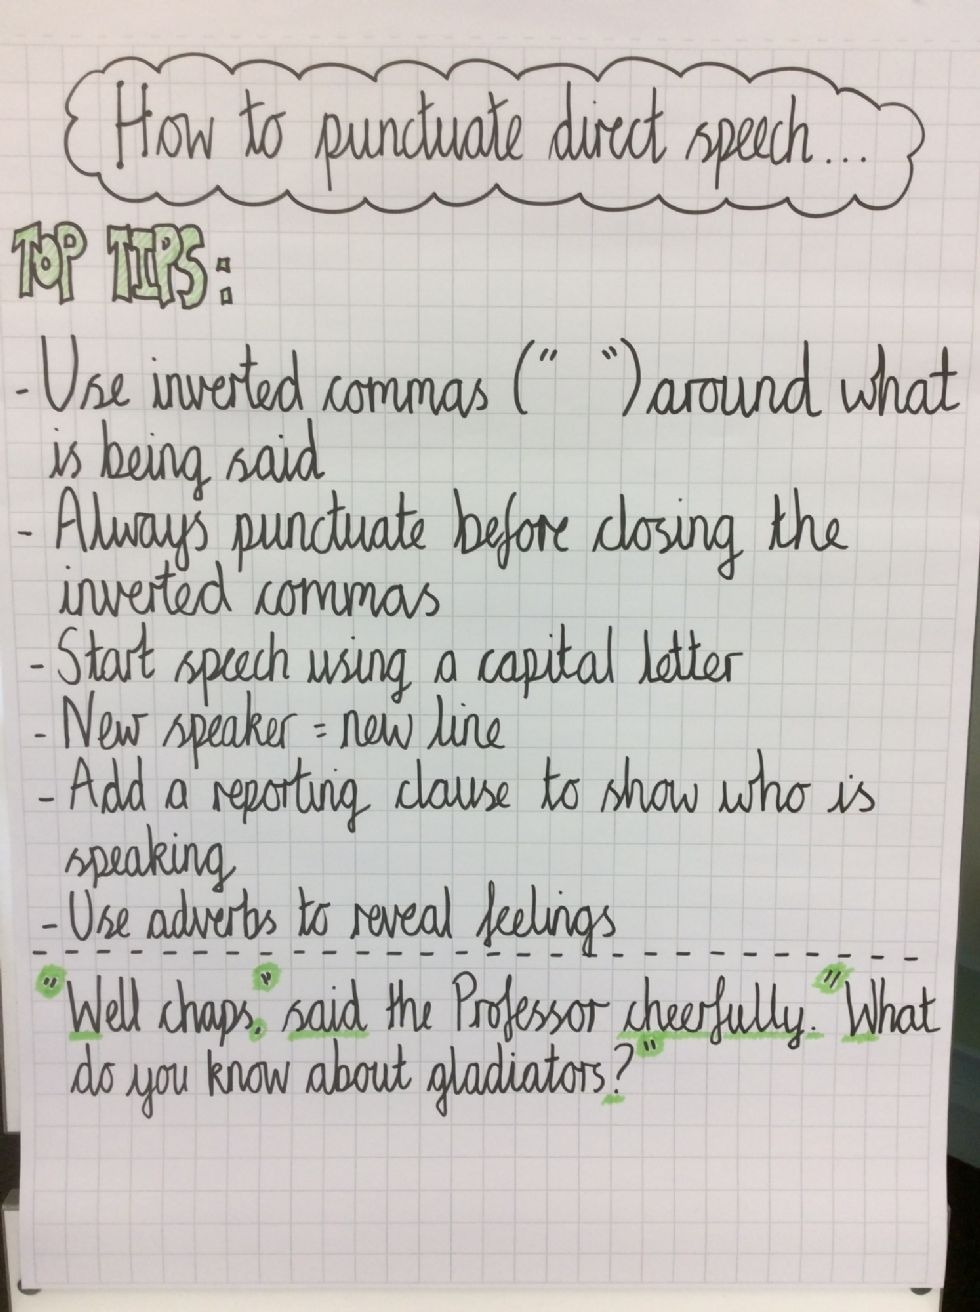 How to punctuate direct speech...
TOP TIPS:
- Use inverted commas (" ") around what
is being said
- Always punctuate before closing the
inverted commas
- Start speech using a capital letter
- New speaker = new line
- Add a reporting clause to show who is
speaking
- Use adverbs to reveal feelings
"Well chaps," said the Professor cheerfully. "What
do you know about gladiators?"